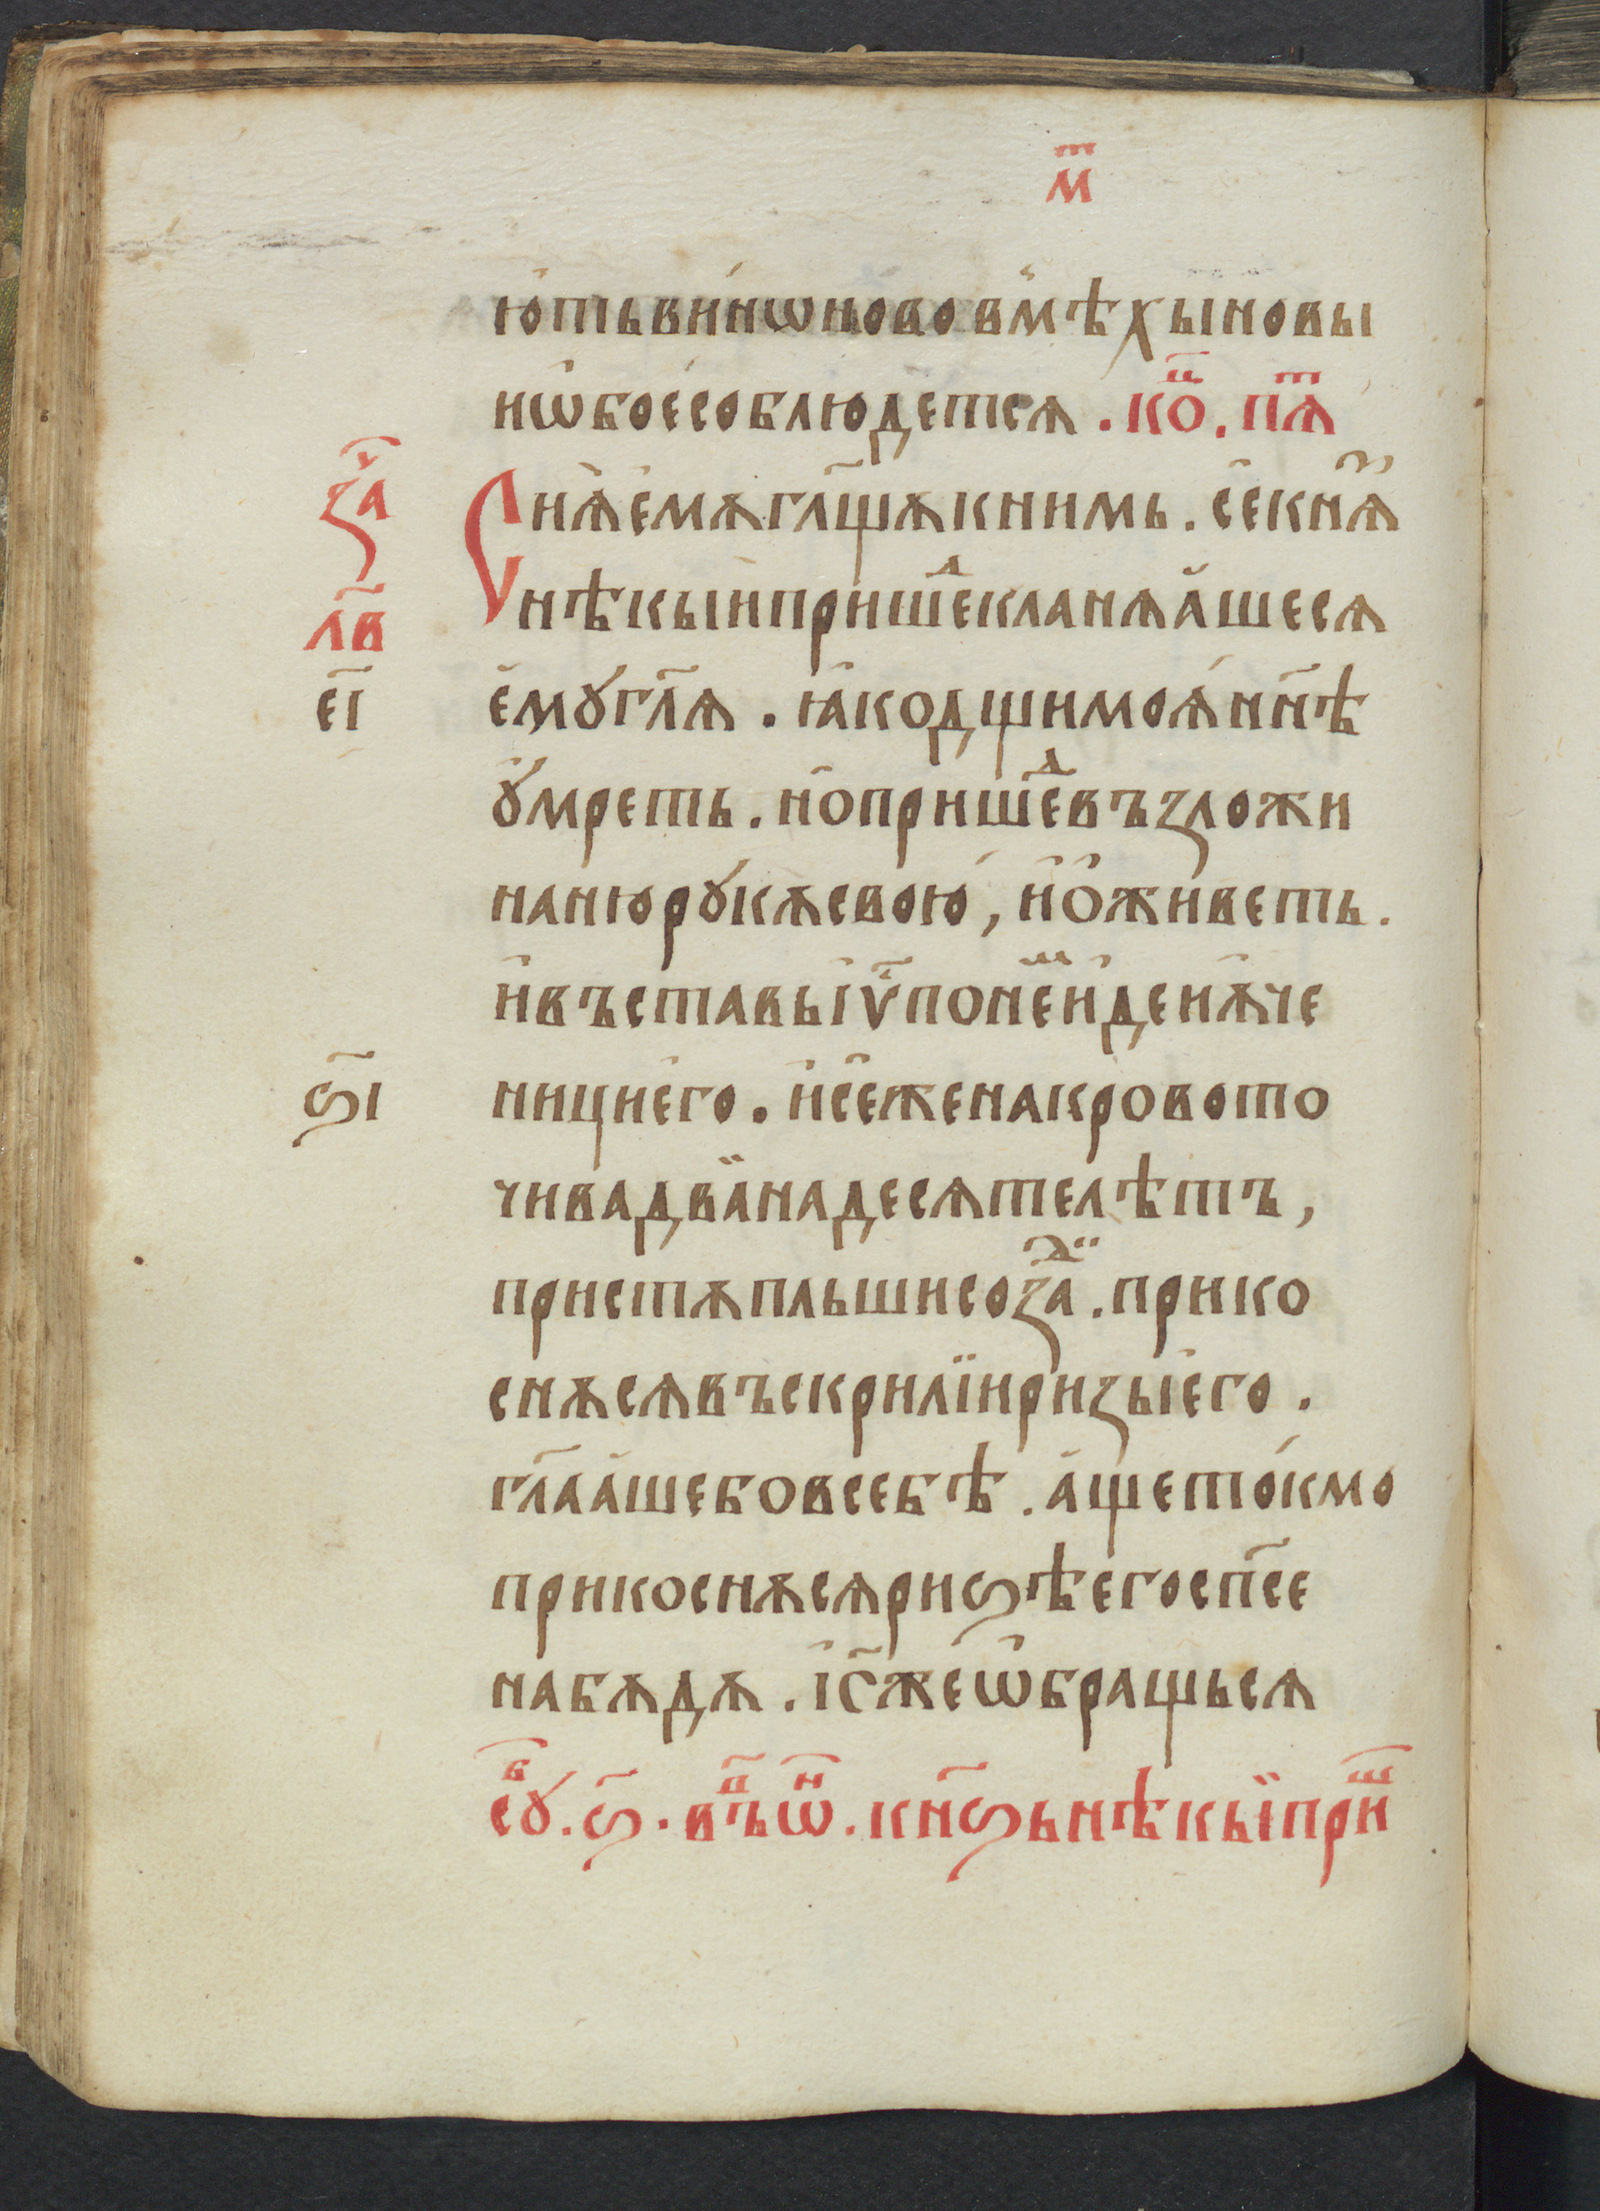 м҃ⷮ
ють вино ѡ ново в мѣхы новы
и ѡбое соблюдетсѧ . ко҃ⷰ . пѧ҃ⷮ
за҃ⷱ
Сиѧ ему гл҃щѫ к нимь . се кн҃ѧ
нѣкыи прише҃ⷣ кланѧашесѧ
л҃в
е҃і
емꙋ гл҃ѧ . ꙗко дщи моѧ нн҃ѣ
ꙋмреть . но прише҃ⷣ възложи
на ню рꙋкѫ свою , и оживеть .
и въставь іѵ҃ по не҃ⷨ иде и ѫче
ѕ҃і
ници его . и се жена кровото
чива два на десѧте лѣтъ ,
пристѫпльши соза҃ⷣ . прико
снѫсѧ въскриліи ризы его .
гл҃ааше бо в себѣ . аще токмо
прикоснѫсѧ риѕѣ его сп҃се
на бѫдѫ . іс҃ же ѡбращьсѧ
сꙋ҃ⷠ . ѕ҃ . въ҃ⷫ ѡ҃ⷩ . кн҃ѕь нѣкыи при҃ⷲ